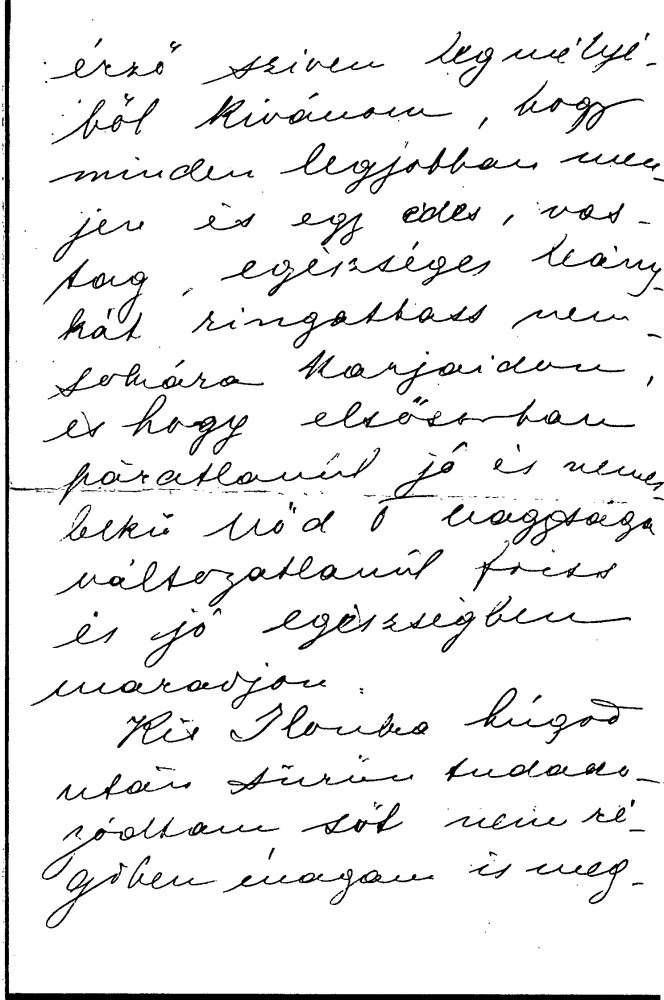 érző szivem legmélyé-
ből kivánom, hogy
minden legjobban men-
jen és egy édes, vas-
tag, egészséges leány-
kát ringathass nem-
sokára karjaidon,
és hogy elsősorban
páratlanúl jó és nemes-
lelkű Nőd Ő Nagysága
változatlanúl friss
és jó egészségben
maradjon.
Kis Ilonka húgod
után sürün tudako-
zódtam sőt nem ré-
giben magam is meg-